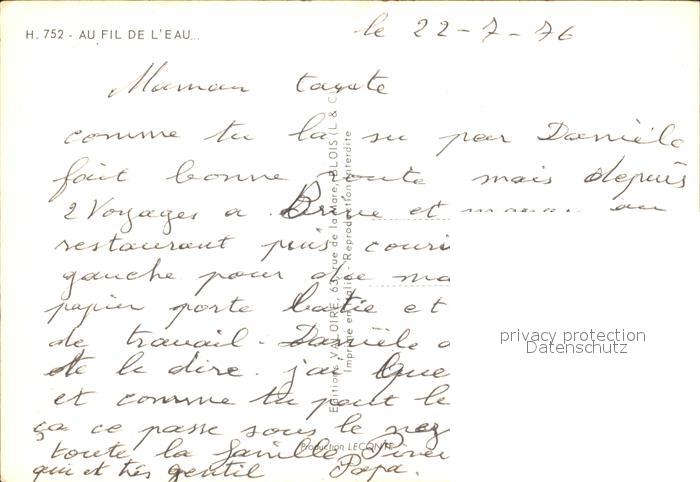 H. 752 - AU FIL DE L'EAU...
le 22-7-76
Maman
comme tu la su par Danièle
fait bonne route mais depuis
2 Voyages a Brive et manger au
restaurant puis
gauche pour
papier porte et
de travail. Danièle
te le dire. j'ai
et comme tu peut le
ça ce passe sous le nez
toute la famille
qui et très gentil Papa.
Editions VALOIRE, 63, rue de la Mare, BLOIS (L. & C.)
Imprimé en Italie - Reproduction interdite
Production LECONTE
privacy protection
Datenschutz